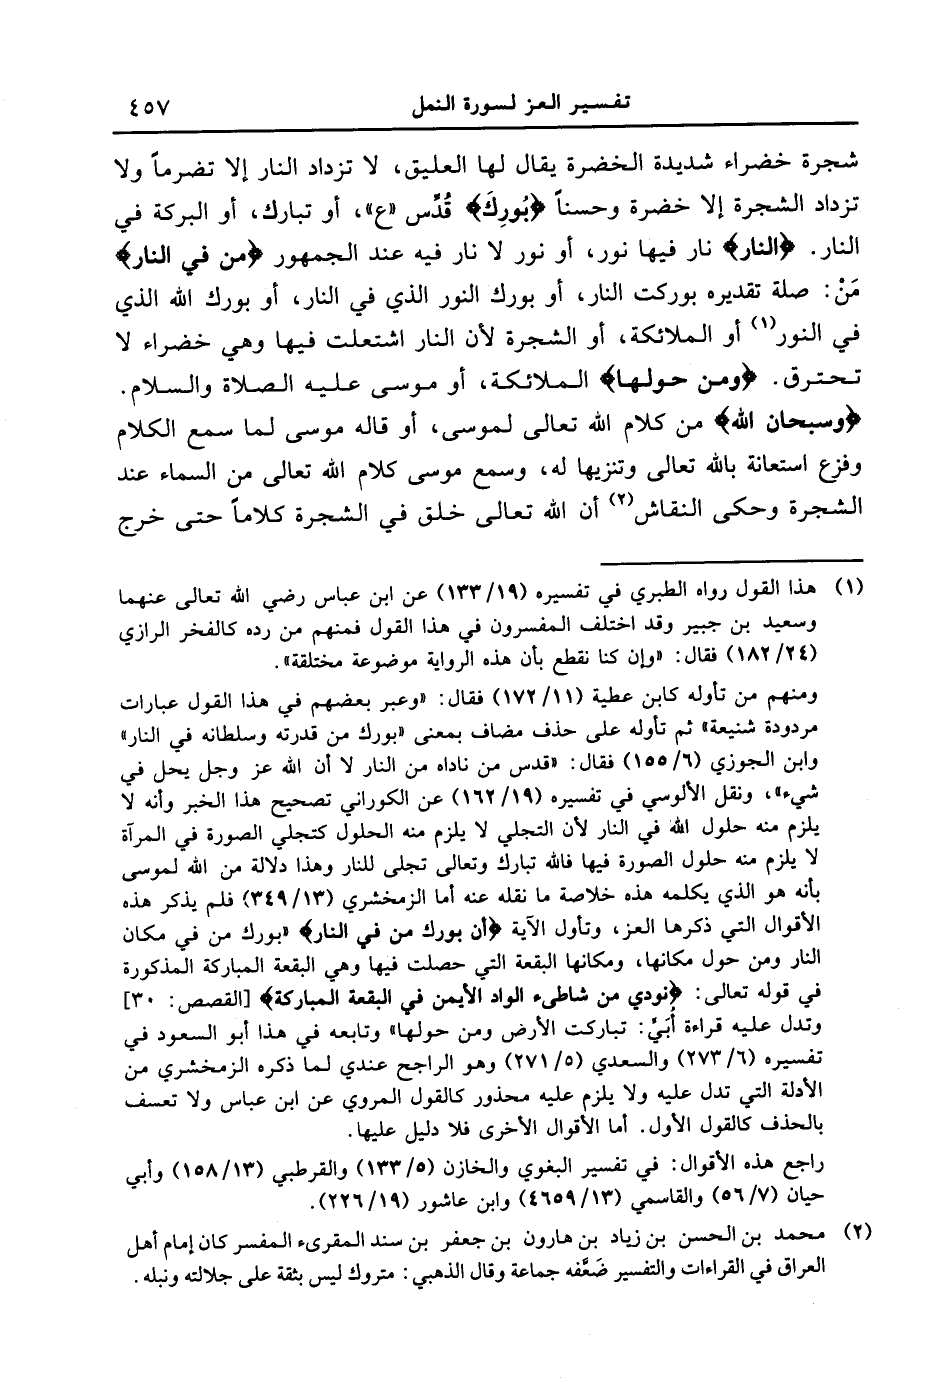 تفسير العز لسورة النمل ٤٥٧
شجرة خضراء شديدة الخضرة يقال لها العليق، لا تزداد النار إلا تضرماً ولا
تزداد الشجرة إلا خضرة وحسناً ﴿بُورِكَ﴾ قُدِّس «ع»، أو تبارك، أو البركة في
النار. ﴿النار﴾ نار فيها نور، أو نور لا نار فيه عند الجمهور ﴿من في النار﴾
مَنْ: صلة تقديره بوركت النار، أو بورك النور الذي في النار، أو بورك الله الذي
في النور(١) أو الملائكة، أو الشجرة لأن النار اشتعلت فيها وهي خضراء لا
تحترق. ﴿ومن حولها﴾ الملائكة، أو موسى عليه الصلاة والسلام.
﴿وسبحان الله﴾ من كلام الله تعالى لموسى، أو قاله موسى لما سمع الكلام
وفزع استعانة بالله تعالى وتنزيها له، وسمع موسى كلام الله تعالى من السماء عند
الشجرة وحكى النقاش(٢) أن الله تعالى خلق في الشجرة كلاماً حتى خرج
(١) هذا القول رواه الطبري في تفسيره (١٩/١٣٣) عن ابن عباس رضي الله تعالى عنهما
وسعيد بن جبير وقد اختلف المفسرون في هذا القول فمنهم من رده كالفخر الرازي
(٢٤/١٨٢) فقال: «وإن كنا نقطع بأن هذه الرواية موضوعة مختلقة».
ومنهم من تأوله كابن عطية (١١/١٧٢) فقال: «وعبر بعضهم في هذا القول عبارات
مردودة شنيعة» ثم تأوله على حذف مضاف بمعنى «بورك من قدرته وسلطانه في النار»
وابن الجوزي (٦/١٥٥) فقال: «قدس من ناداه من النار لا أن الله عز وجل يحل في
شيء»، ونقل الألوسي في تفسيره (١٩/١٦٢) عن الكوراني تصحيح هذا الخبر وأنه لا
يلزم منه حلول الله في النار لأن التجلي لا يلزم منه الحلول كتجلي الصورة في المرآة
لا يلزم منه حلول الصورة فيها فالله تبارك وتعالى تجلى للنار وهذا دلالة من الله لموسى
بأنه هو الذي يكلمه هذه خلاصة ما نقله عنه أما الزمخشري (١٣/٣٤٩) فلم يذكر هذه
الأقوال التي ذكرها العز، وتأول الآية ﴿أن بورك من في النار﴾ «بورك من في مكان
النار ومن حول مكانها، ومكانها البقعة التي حصلت فيها وهي البقعة المباركة المذكورة
في قوله تعالى: ﴿نودي من شاطىء الواد الأيمن في البقعة المباركة﴾ [القصص: ٣٠]
وتدل عليه قراءة أُبَيّ: تباركت الأرض ومن حولها» وتابعه في هذا أبو السعود في
تفسيره (٦/٢٧٣) والسعدي (٥/٢٧١) وهو الراجح عندي لما ذكره الزمخشري من
الأدلة التي تدل عليه ولا يلزم عليه محذور كالقول المروي عن ابن عباس ولا تعسف
بالحذف كالقول الأول. أما الأقوال الأخرى فلا دليل عليها.
راجع هذه الأقوال: في تفسير البغوي والخازن (٥/١٣٣) والقرطبي (١٣/١٥٨) وأبي
حيان (٧/٥٦) والقاسمي (١٣/٤٦٥٩) وابن عاشور (١٩/٢٢٦).
(٢) محمد بن الحسن بن زياد بن هارون بن جعفر بن سند المقرىء المفسر كان إمام أهل
العراق في القراءات والتفسير ضَعَّفه جماعة وقال الذهبي: متروك ليس بثقة على جلالته ونبله.